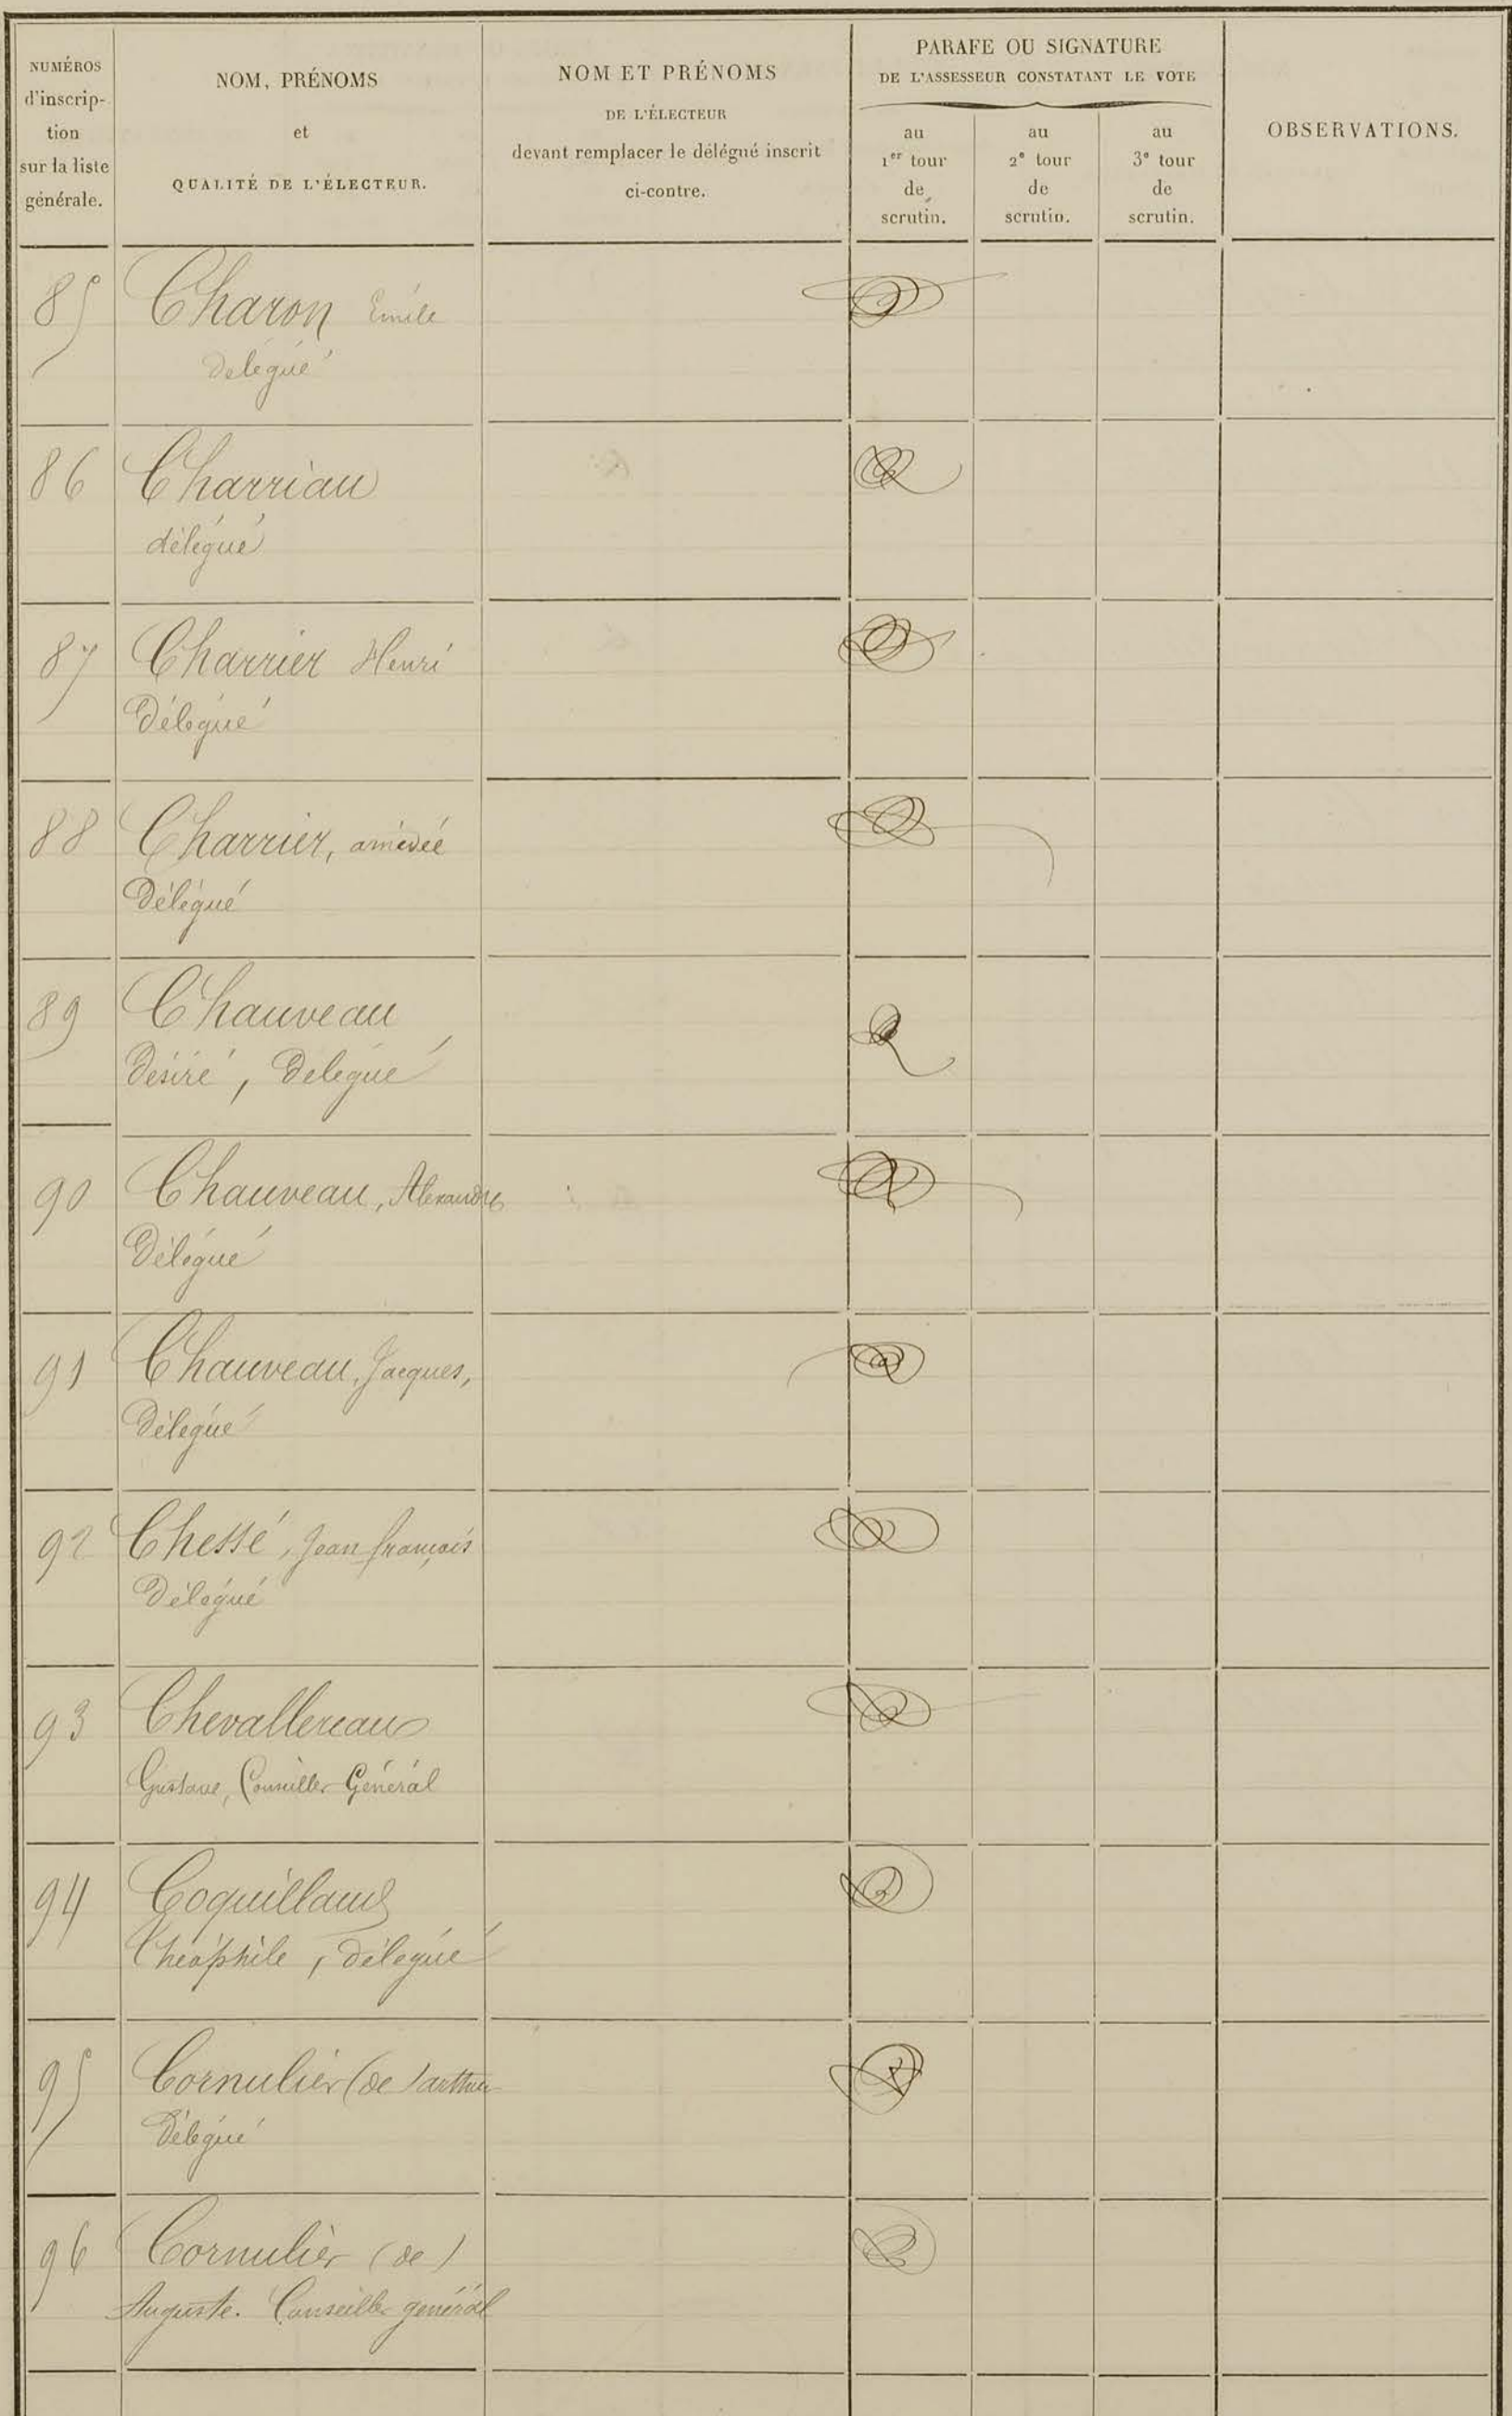 NUMÉROS
d'inscrip-
tion
sur la liste
générale.
NOM, PRÉNOMS
et
QUALITÉ DE L'ÉLECTEUR.
NOM ET PRÉNOMS
DE L'ÉLECTEUR
devant remplacer le délégué inscrit
ci-contre.
PARAFE OU SIGNATURE
DE L'ASSESSEUR CONSTATANT LE VOTE
au
1er tour
de
scrutin.
au
2e tour
de
scrutin.
au
3e tour
de
scrutin.
OBSERVATIONS.
85 Charon Emile
Délégué
86 Charriau
délégué
87 Charrier Henri
Délégué
88 Charrier, amédée
Délégué
89 Chauveau
Désiré, Délégué
90 Chauveau, Alexandre
Délégué
91 Chauveau, Jacques,
Délégué
92 Chessé, Jean françois
Délégué
93 Chevallereau
Gustave, Conseiller Général
94 Coquillaud
Théophile, délégué
95 Cornulier (de) arthur
Délégué
96 Cornulier (de)
Auguste. Conseiller général